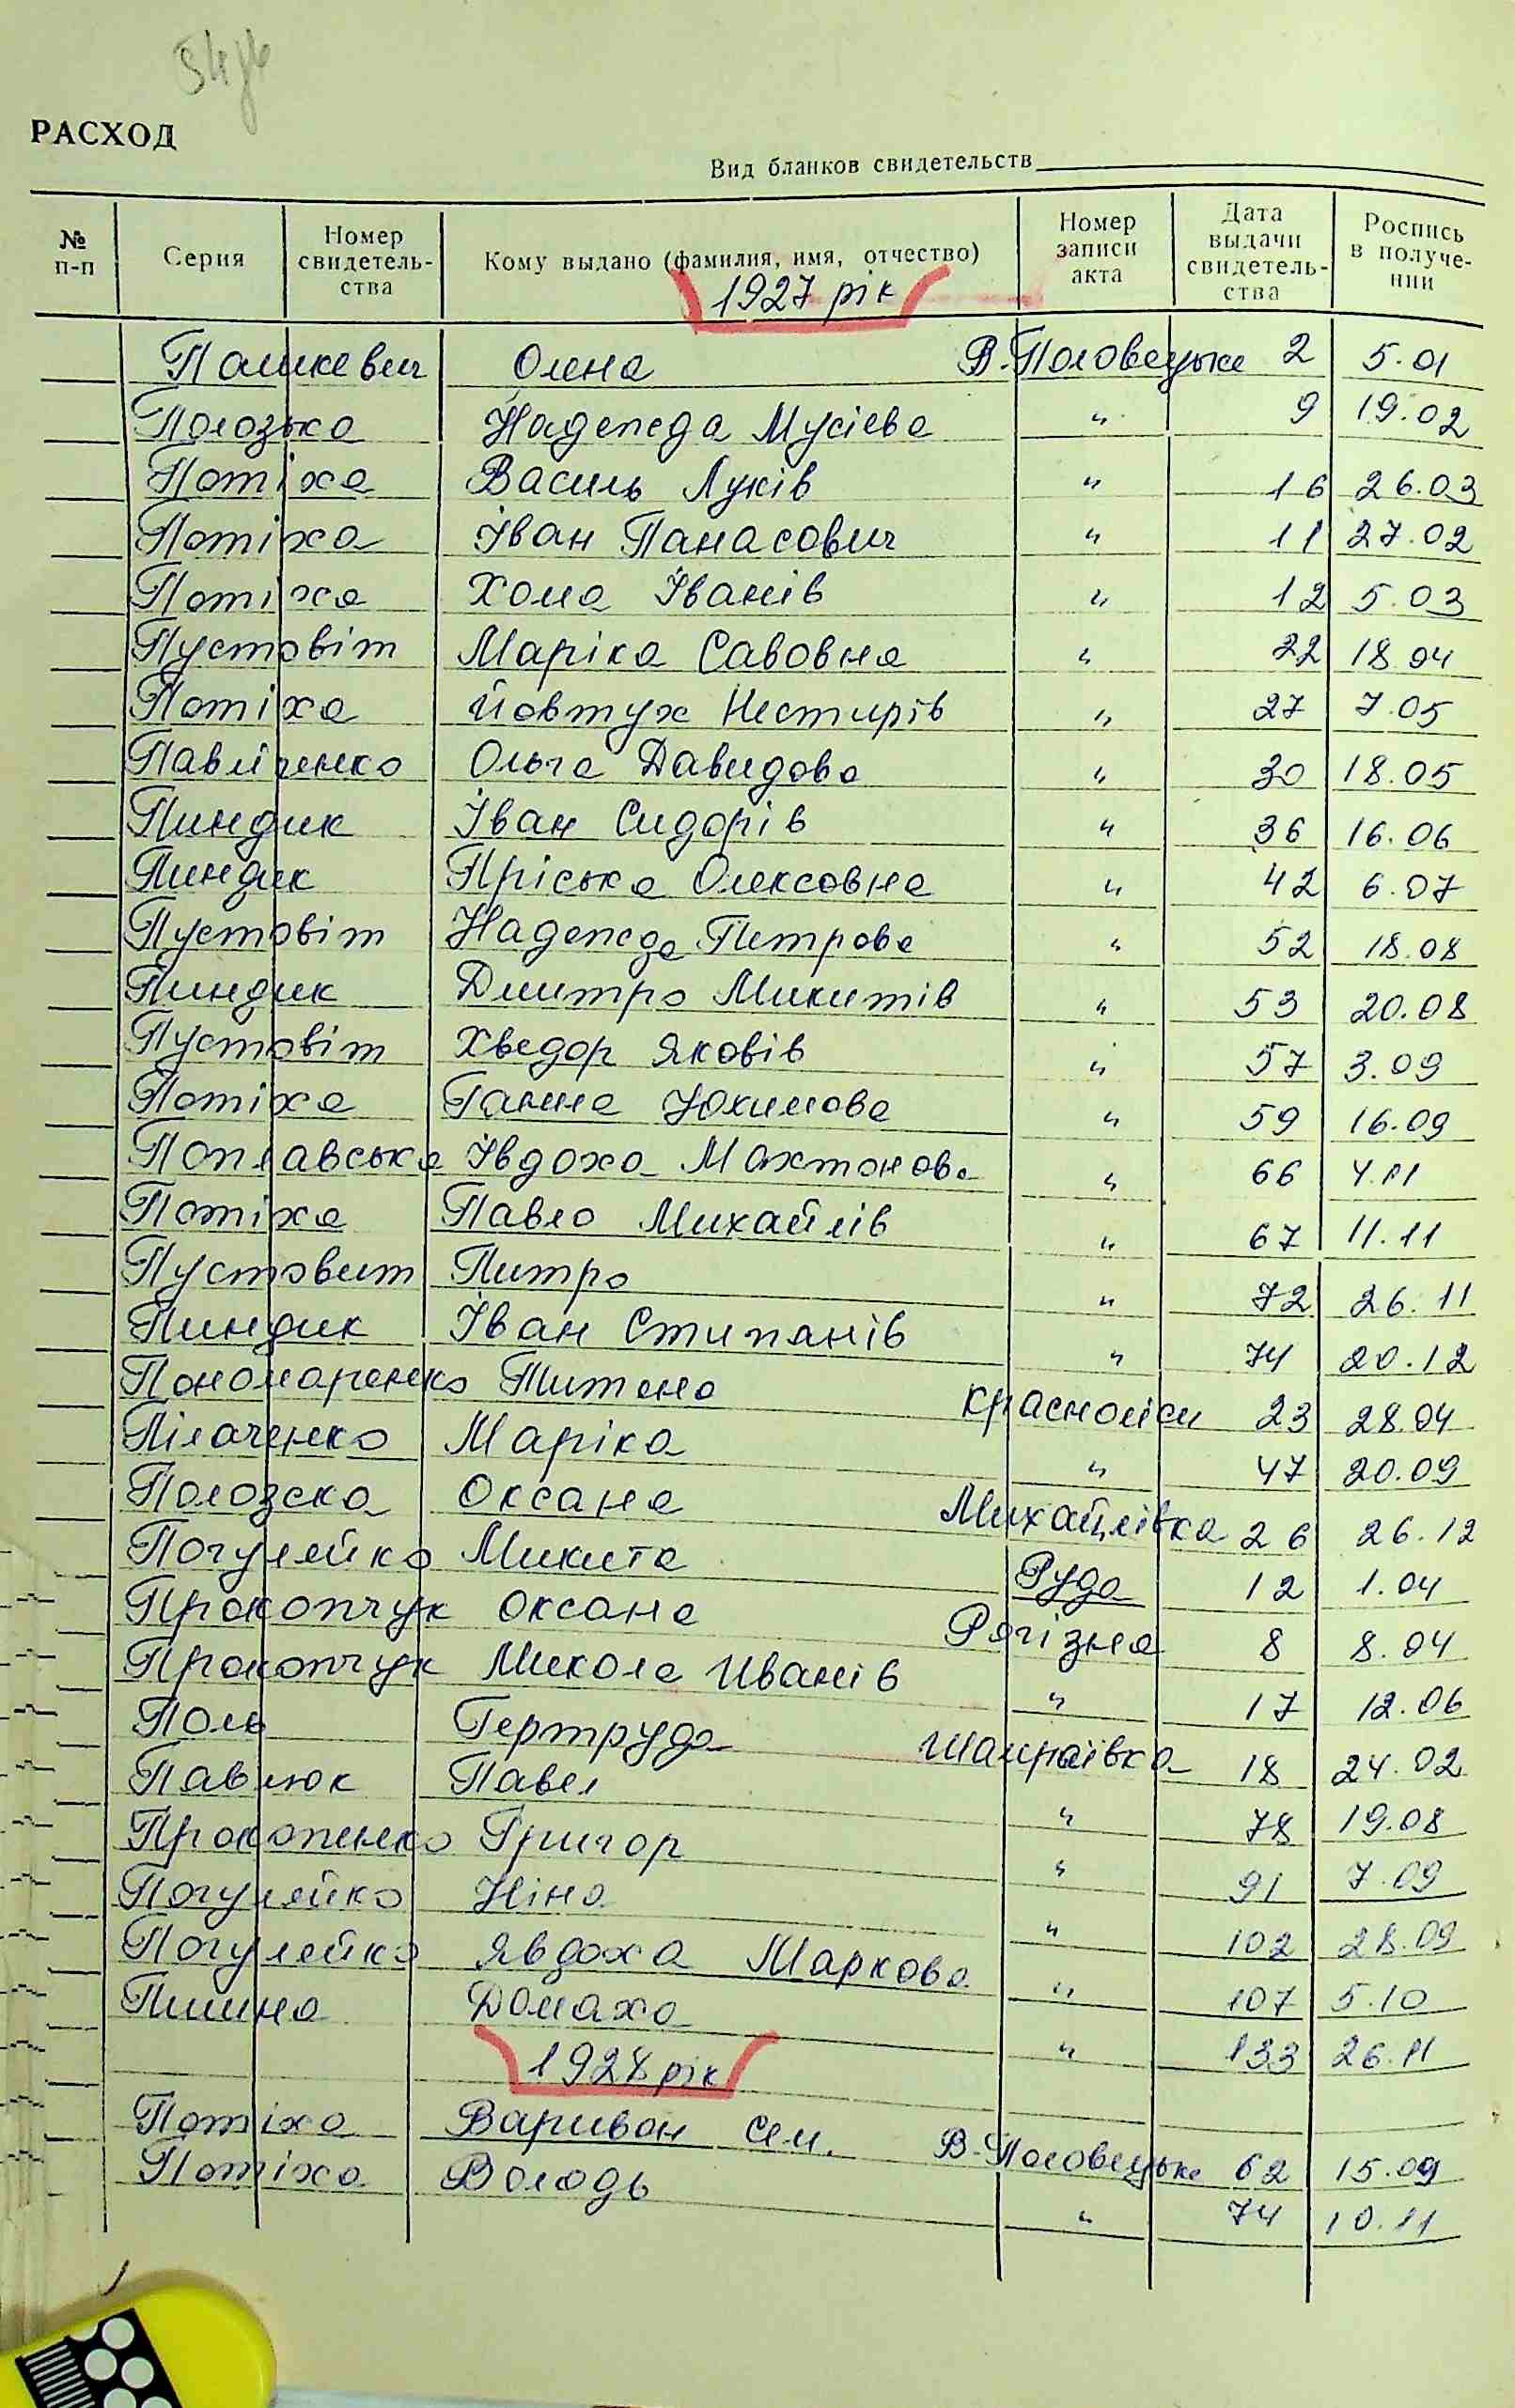 РАСХОД
Вид бланков свидетельств
№ п-п Серия Номер свидетель-ства Кому выдано (фамилия, имя, отчество) Номер записи акта Дата выдачи свидетель-ства Роспись в получе-нии
1927 рік
Пашкевич Олена В.Половецьке 2 5.01
Полозька Надежда Мусієва " 9 19.02
Потіха Василь Луків " 16 26.03
Потіха Іван Панасович " 11 27.02
Потіха Хома Іванів " 12 5.03
Пустовіт Маріка Савовна " 22 18.04
Потіха Йовтух Нестирів " 27 7.05
Павліченко Ольга Давидова " 30 18.05
Пиндик Іван Сидорів " 36 16.06
Пиндик Пріська Олексовна " 42 6.07
Пустовіт Надежда Петрова " 52 18.08
Пиндик Дмитро Микитів " 53 20.08
Пустовіт Хведор Яковів " 57 3.09
Потіха Ганна Юхимова " 59 16.09
Поплавська Івдоха Махтонова " 66 4.11
Потіха Павло Михайлів " 67 11.11
Пустовит Питро " 72 26.11
Пиндик Іван Стипанів " 74 20.12
Пономаренко Титяна Красноліси 23 28.04
Пілаченко Маріка " 47 20.09
Полозска Оксана Михайлівка 26 26.12
Погуляйко Микита Руда 12 1.04
Прокопчук Оксана Рогізна 8 8.04
Прокопчук Микола Иванів " 17 12.06
Поль Гертруда Шамраївка 18 24.02
Павлюк Павел " 78 19.08
Прокопенко Григор " 91 7.09
Погуляйко Ніна " 102 28.09
Погуляйко Явдоха Маркова " 107 5.10
Домаха " 133 26.11
1928 рік
Потіха Варивон Сем. В-Половецьке 62 15.09
Потіха Володь " 74 10.11